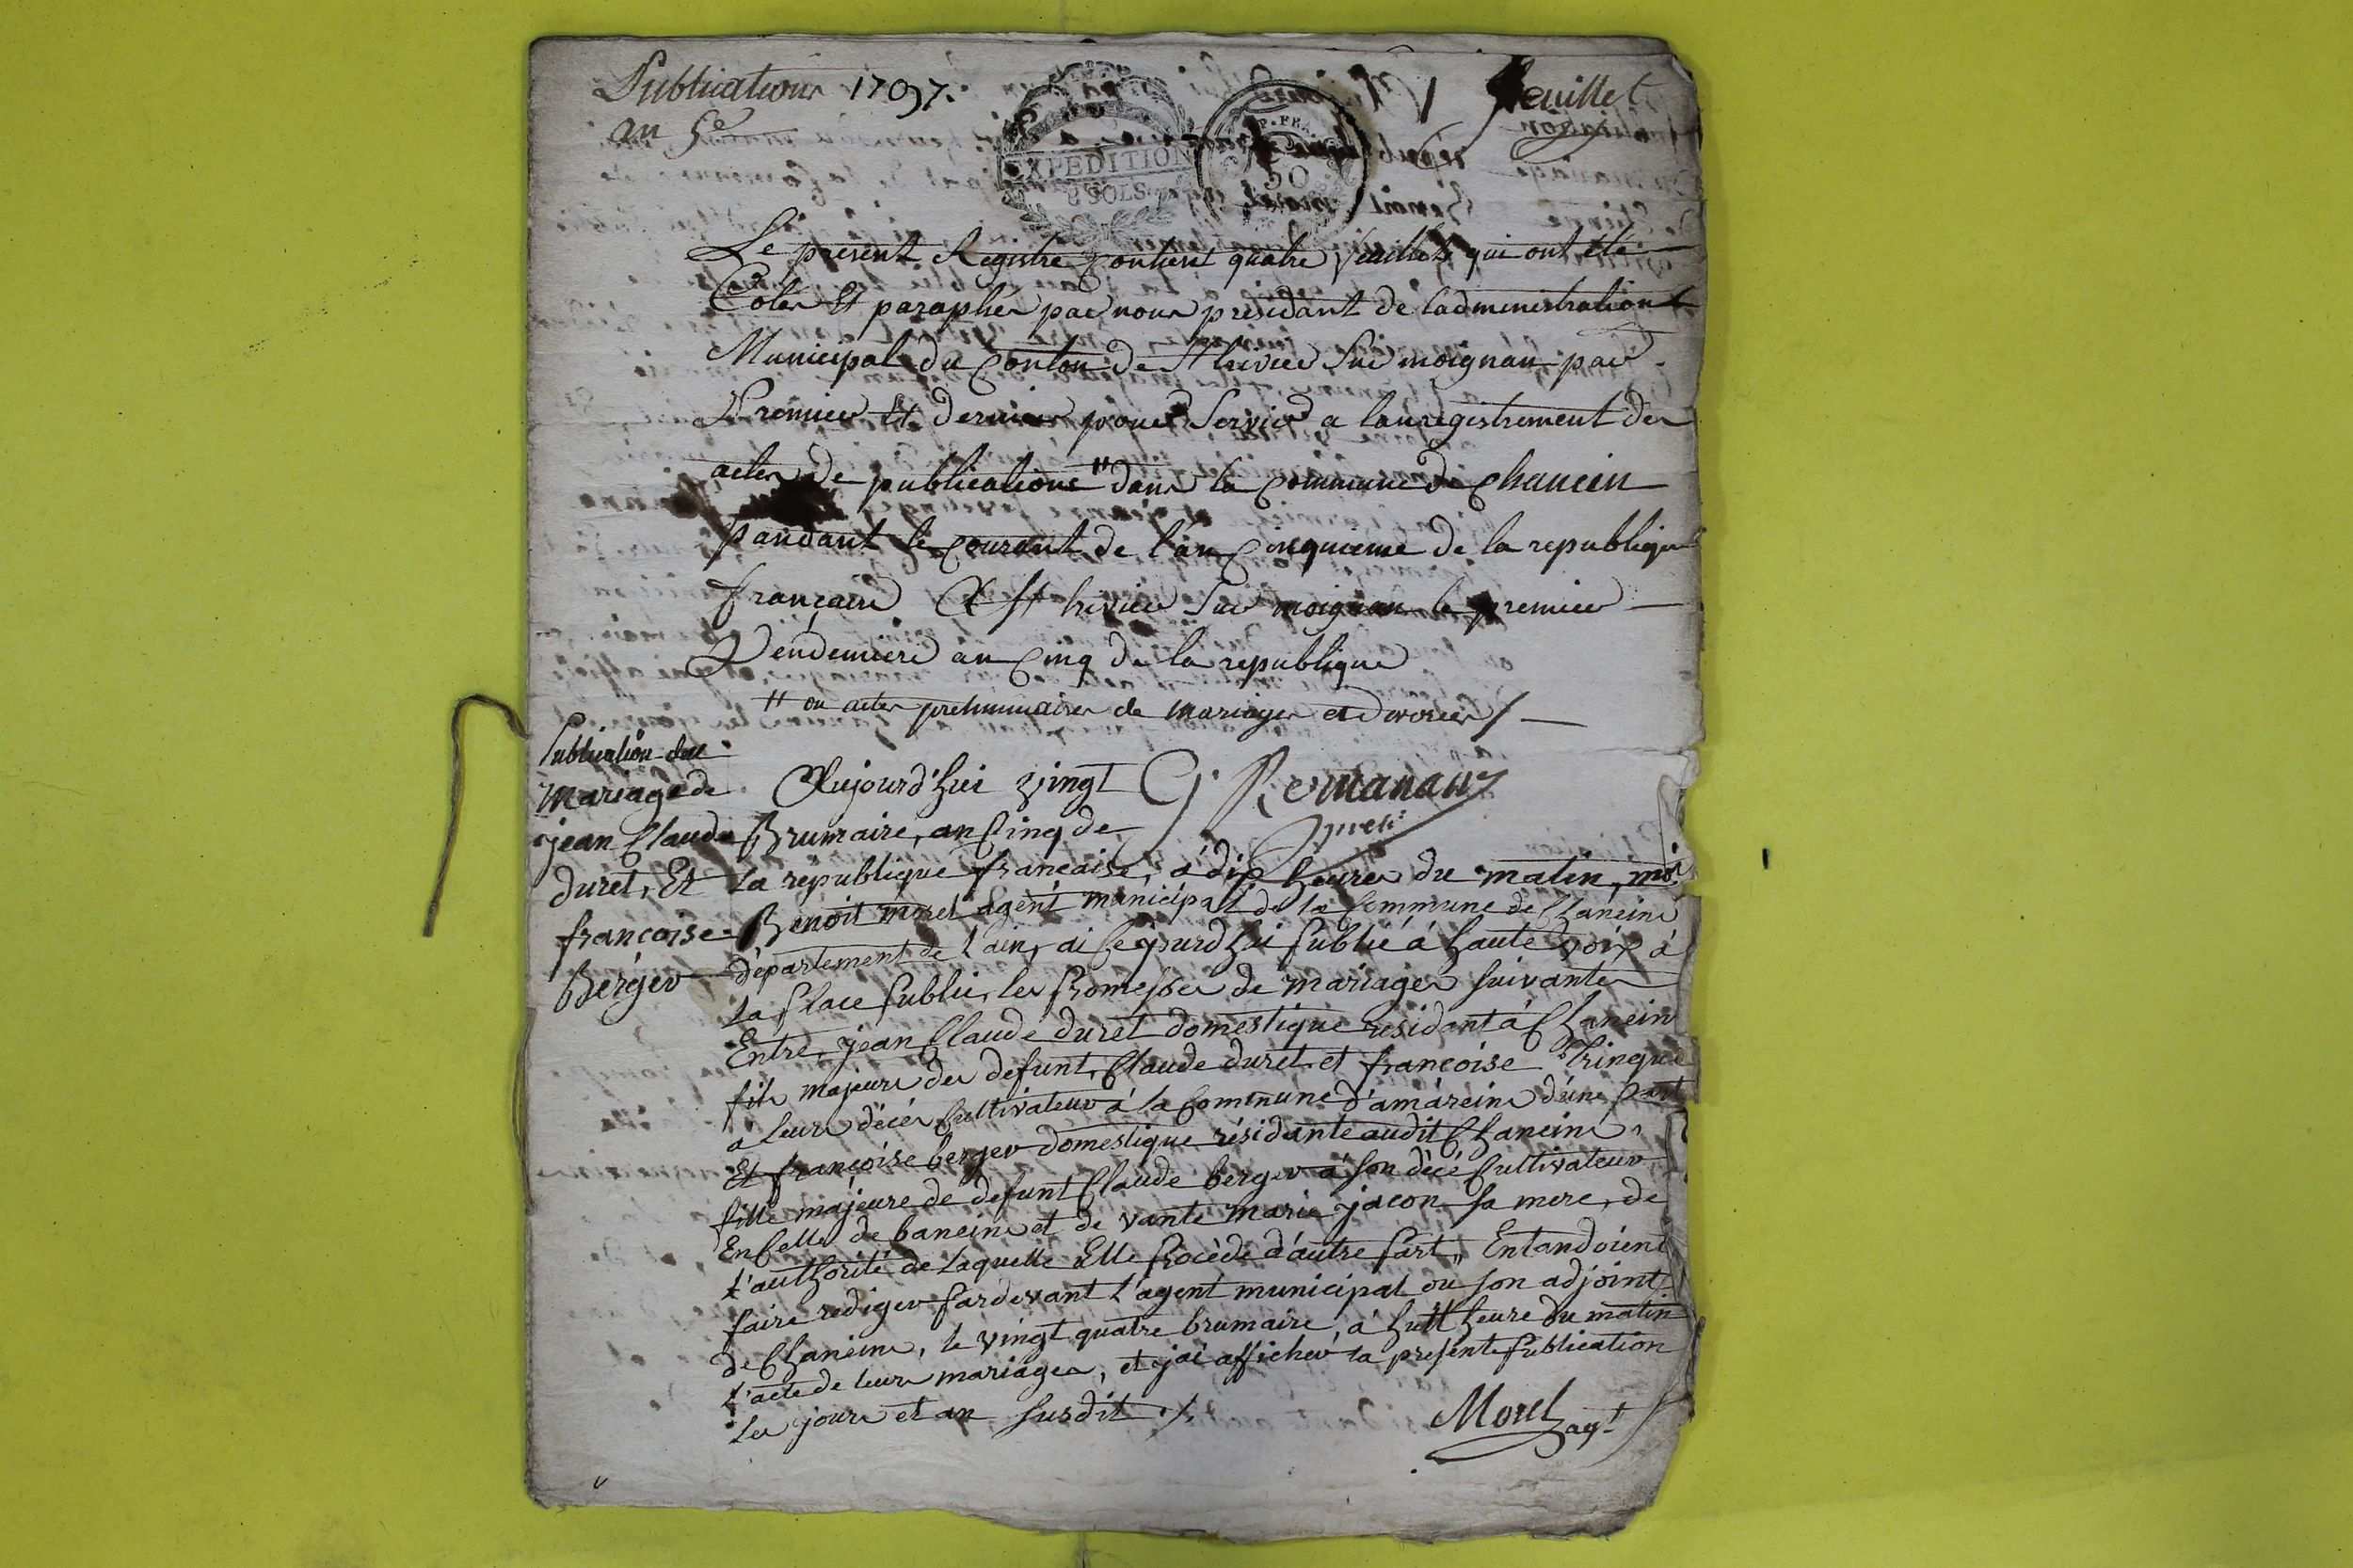 Publications 1797.
an 5e
1 feuillet
EXPEDITION
8 SOLS
50
Le present Registre Contient quatre feuillets qui ont été
Cotés Et paraphés par nous presidant de ladministration
Municipal du Conton de St trivier Sur moignan par
Premier Et dernier pour Servir a lanregistrement des
actes de publications " dans la Commune de Chanein
pandant le Courant de l'an Cinquieme de la republique
française A St trivier Sur moignan le premier
Vendemiere an Cinq de la republique
" ou actes preliminaires de mariages et divorces /
G Remanau
presi.
Publication du
mariage de
jean Claude
duret, Et
françoise
Berger
Aujourd'hui vingt
Brumaire, an Cinq de
la republique francaise, à dix heures du matin, moi
Benoit morel agent municipal de la Commune de Chaneins
département de l'ain, ai Cejourdhui publié à haute voix à
la place public, les promesses de mariages suivantes
Entre, jean Claude duret domestique residant à Chanein
fils majeurs des defunt, Claude duret et francoise Trinque
a leurs décés Cultivateur à la Commune d'amareins d'une part
Et françoise berger domestique résidante audit Chaneins,
fille majeure de defunt Claude berger à son décé Cultivateur
En Celle de baneins et de vante marie jacon sa mere, de
l'authorité de laquelle Elle procède d'autre part, Entandoient
faire rediger pardevant l'agent municipal ou son adjoint
de Chaneins, le vingt quatre brumaire, à huit heure du matin
l'acte de leurs mariages, et jai afficher la present publication
les jours et an susdit ./.
Morel agt